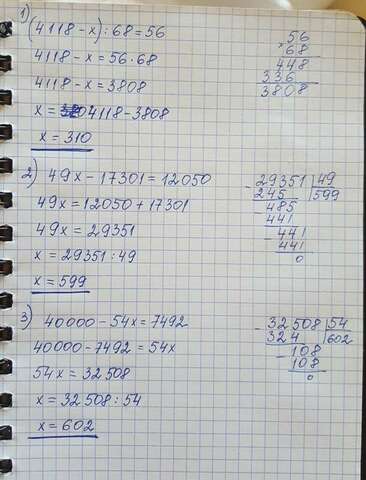 1)
(4118-x):68=56
4118-x=56·68
4118-x=3808
x=4118-3808
x=310
56
×68
448
336
3808
2) 49x-17301=12050
49x=12050+17301
49x=29351
x=29351:49
x=599
-29351|49
245 |599
-485
441
-441
441
0
3) 40000-54x=7492
40000-7492=54x
54x=32508
x=32508:54
x=602
-32508|54
324 |602
-108
108
0